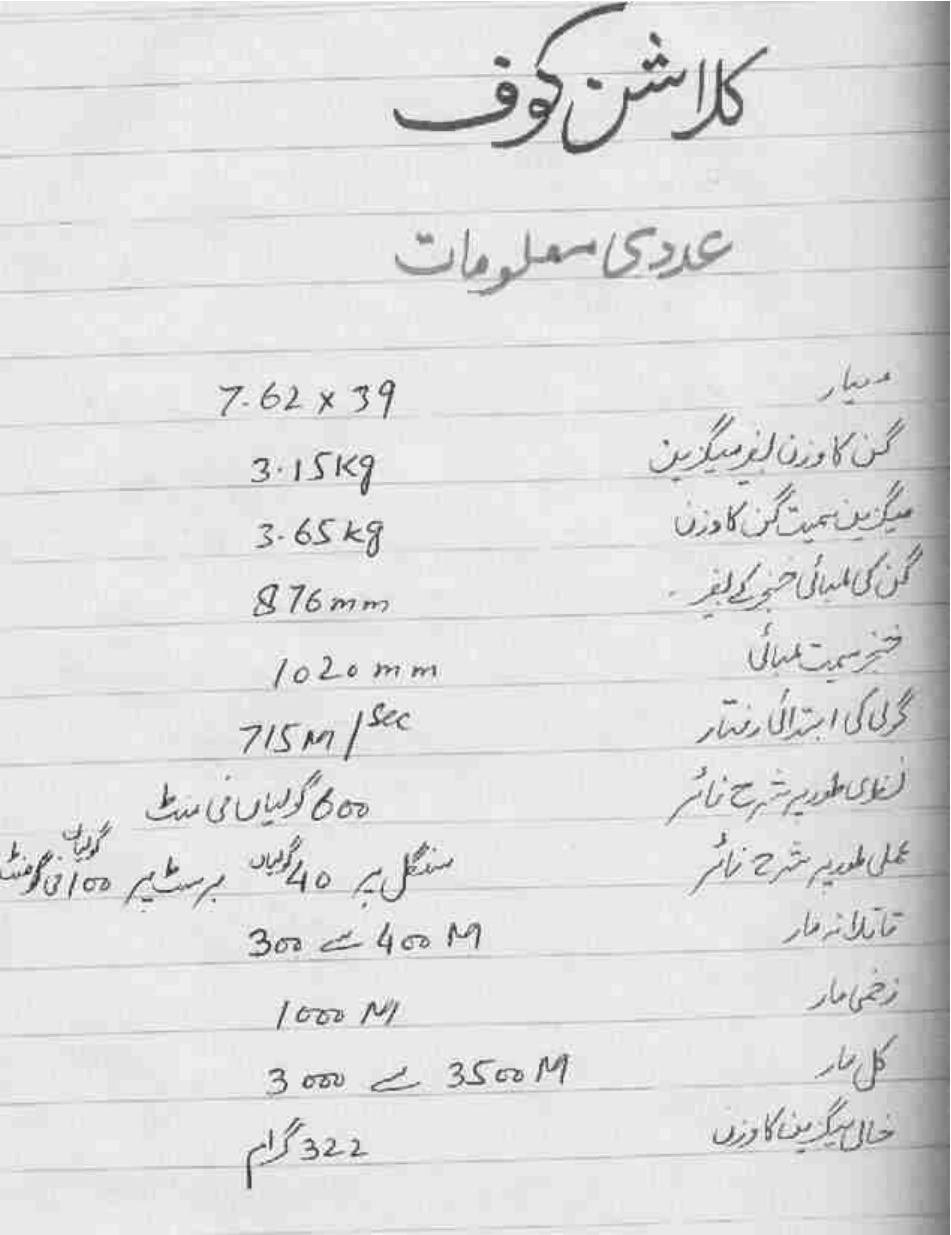 کلاشن کوف
عددی معلومات
معیار 7.62 x 39
گن کا وزن بغیر میگزین 3.15kg
میگزین سمیت گن کا وزن 3.65kg
گن کی لمبائی خنجر کے بغیر 876mm
خنجر سمیت لمبائی 1020mm
گولی کی ابتدائی رفتار 715M/Sec
طور پر شرح فائر 600 گولیاں فی منٹ
عملی طور پر شرح فائر سنگل پر 40 گولیاں برسٹ پر 100 گولیاں فی منٹ
قاتلانہ مار 300 سے 400 M
زخمی مار 1000 M
کل مار 3000 سے 3500 M
خالی میگزین کا وزن 322 گرام